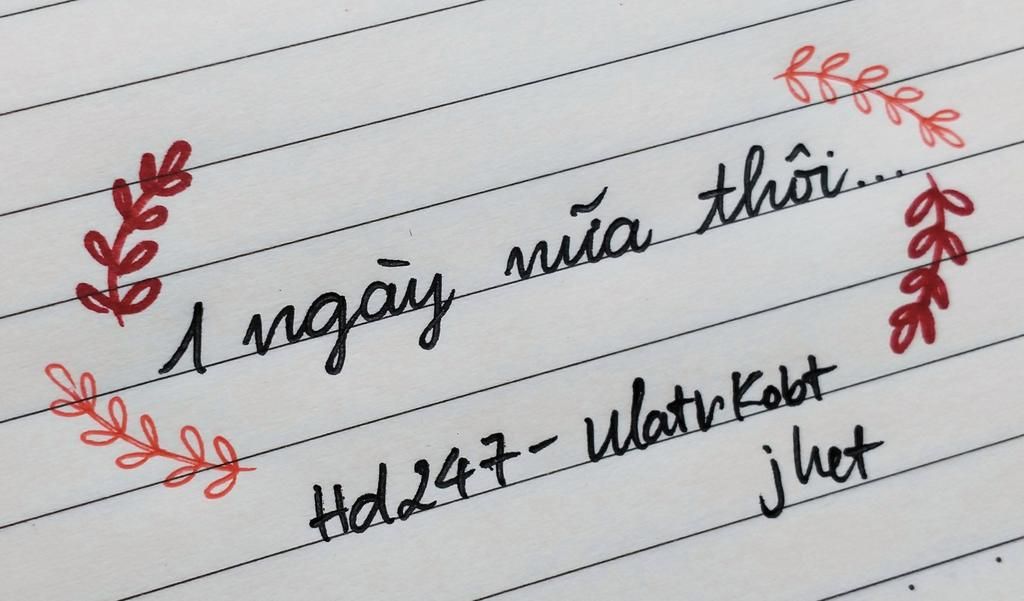 1 ngày nữa thôi...
Hd247 - UlatrKobt
jhet